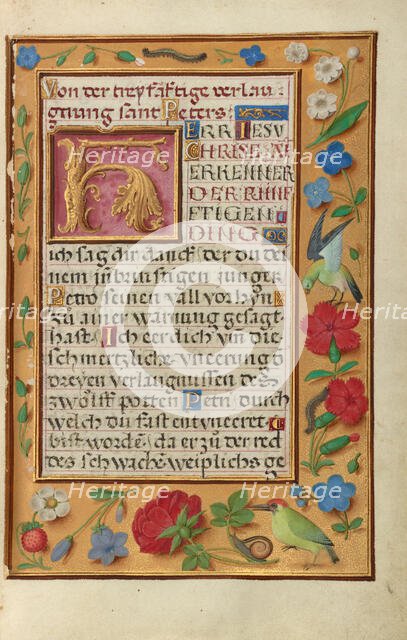 Von der treyfaltige verlau-
gnung sant Peters:
ERR IESV
CHRISE, A
ERKENNER
DER KVNF
FTIGEN
DING
ich sag dir danck der du dei
nem inbrustigen junger
Petro seinen vall vorhyn
zu ainer warnung gesagt
hast. Ich eer dich vmb die
schmertzliche vneerung d
dreyen verlaugnussen des
zwolff potten Petri durch
welch du fast entvneeret
bist worden da er zu der red
des schwache weiplichs ge
Heritage Heritage Heritage
Heritage Heritage Heritage
Heritage Heritage Heritage